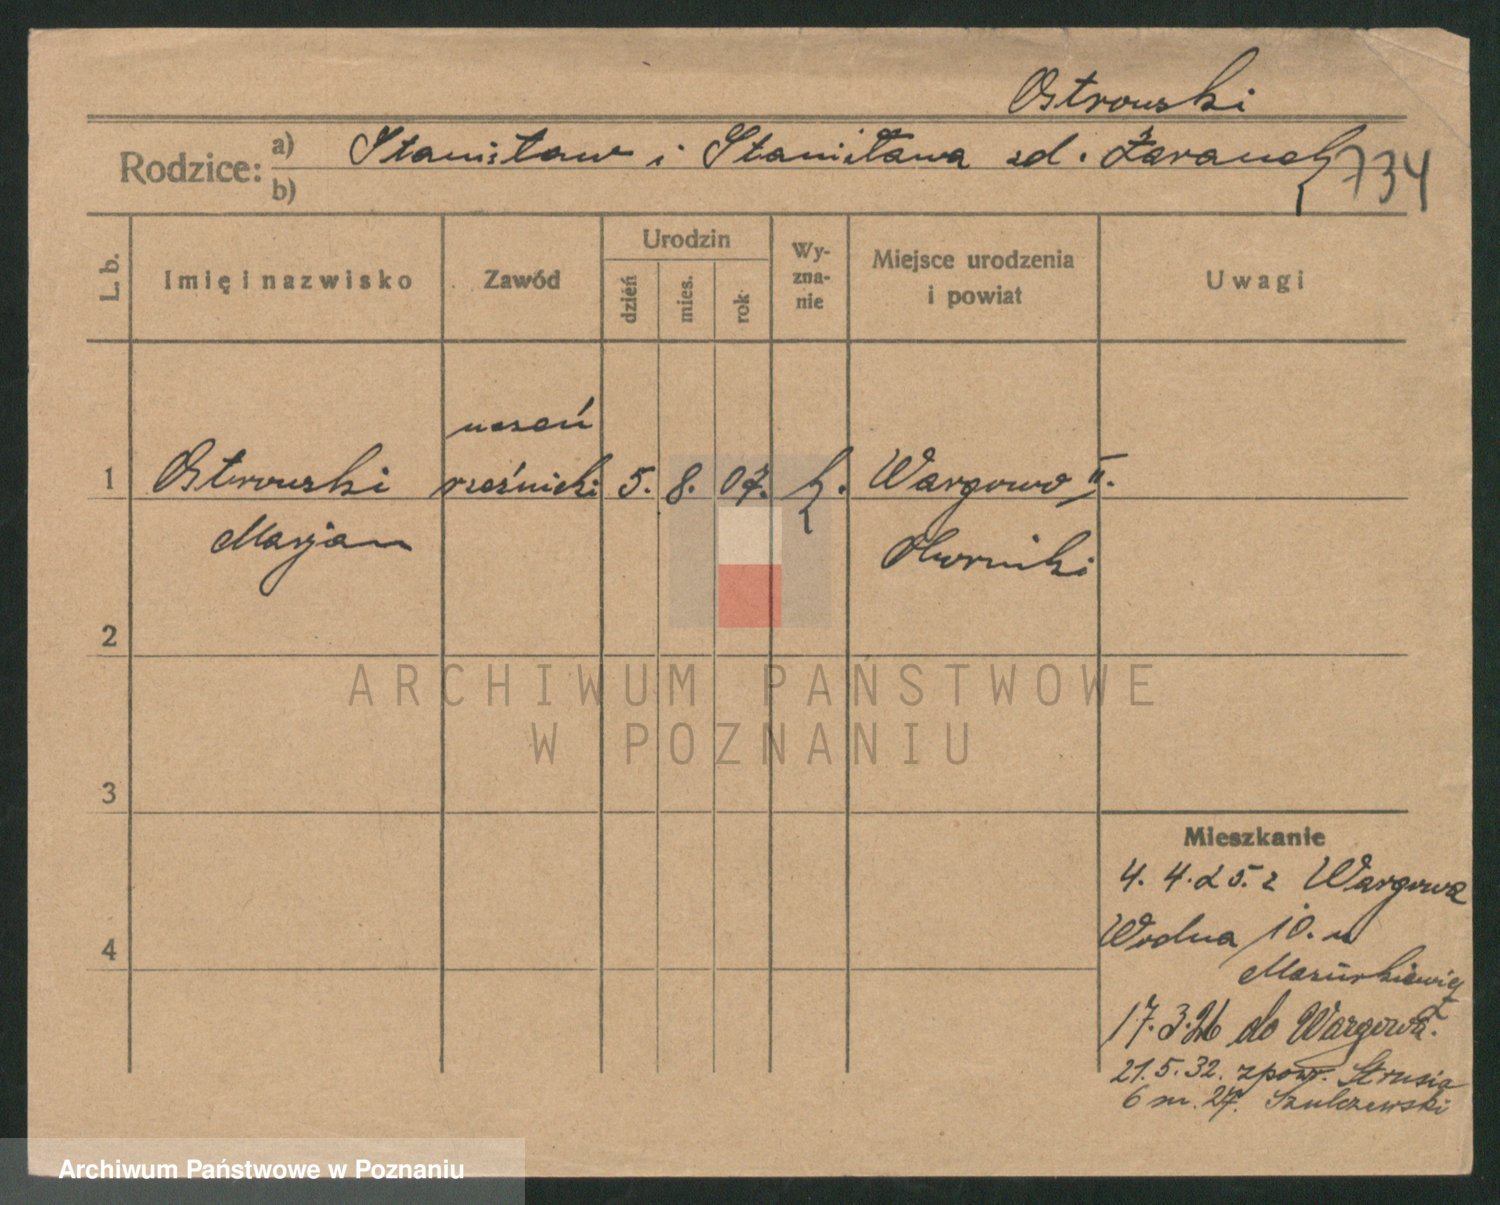 Ostrowski
Rodzice: a) Stanisław i Stanisława zd. Żurauch 734
b)
L. b. Imię i nazwisko Zawód Urodzin dzień mies. rok Wy-zna-nie Miejsce urodzenia i powiat Uwagi
uczeń
1 Ostrowski rzeźnicki 5. 8. 07. k. Wargowo II.
Marjan Oborniki
2
ARCHIWUM PAŃSTWOWE
W POZNANIU
3
Mieszkanie
4. 4. 25. z Wargowa
Wodna 10. u
4
Mazurkiewicz
17. 3. 26 do Wargowa.
21. 5. 32. zpowr. Strusia
6 m. 27. Szulczewski
Archiwum Państwowe w Poznaniu